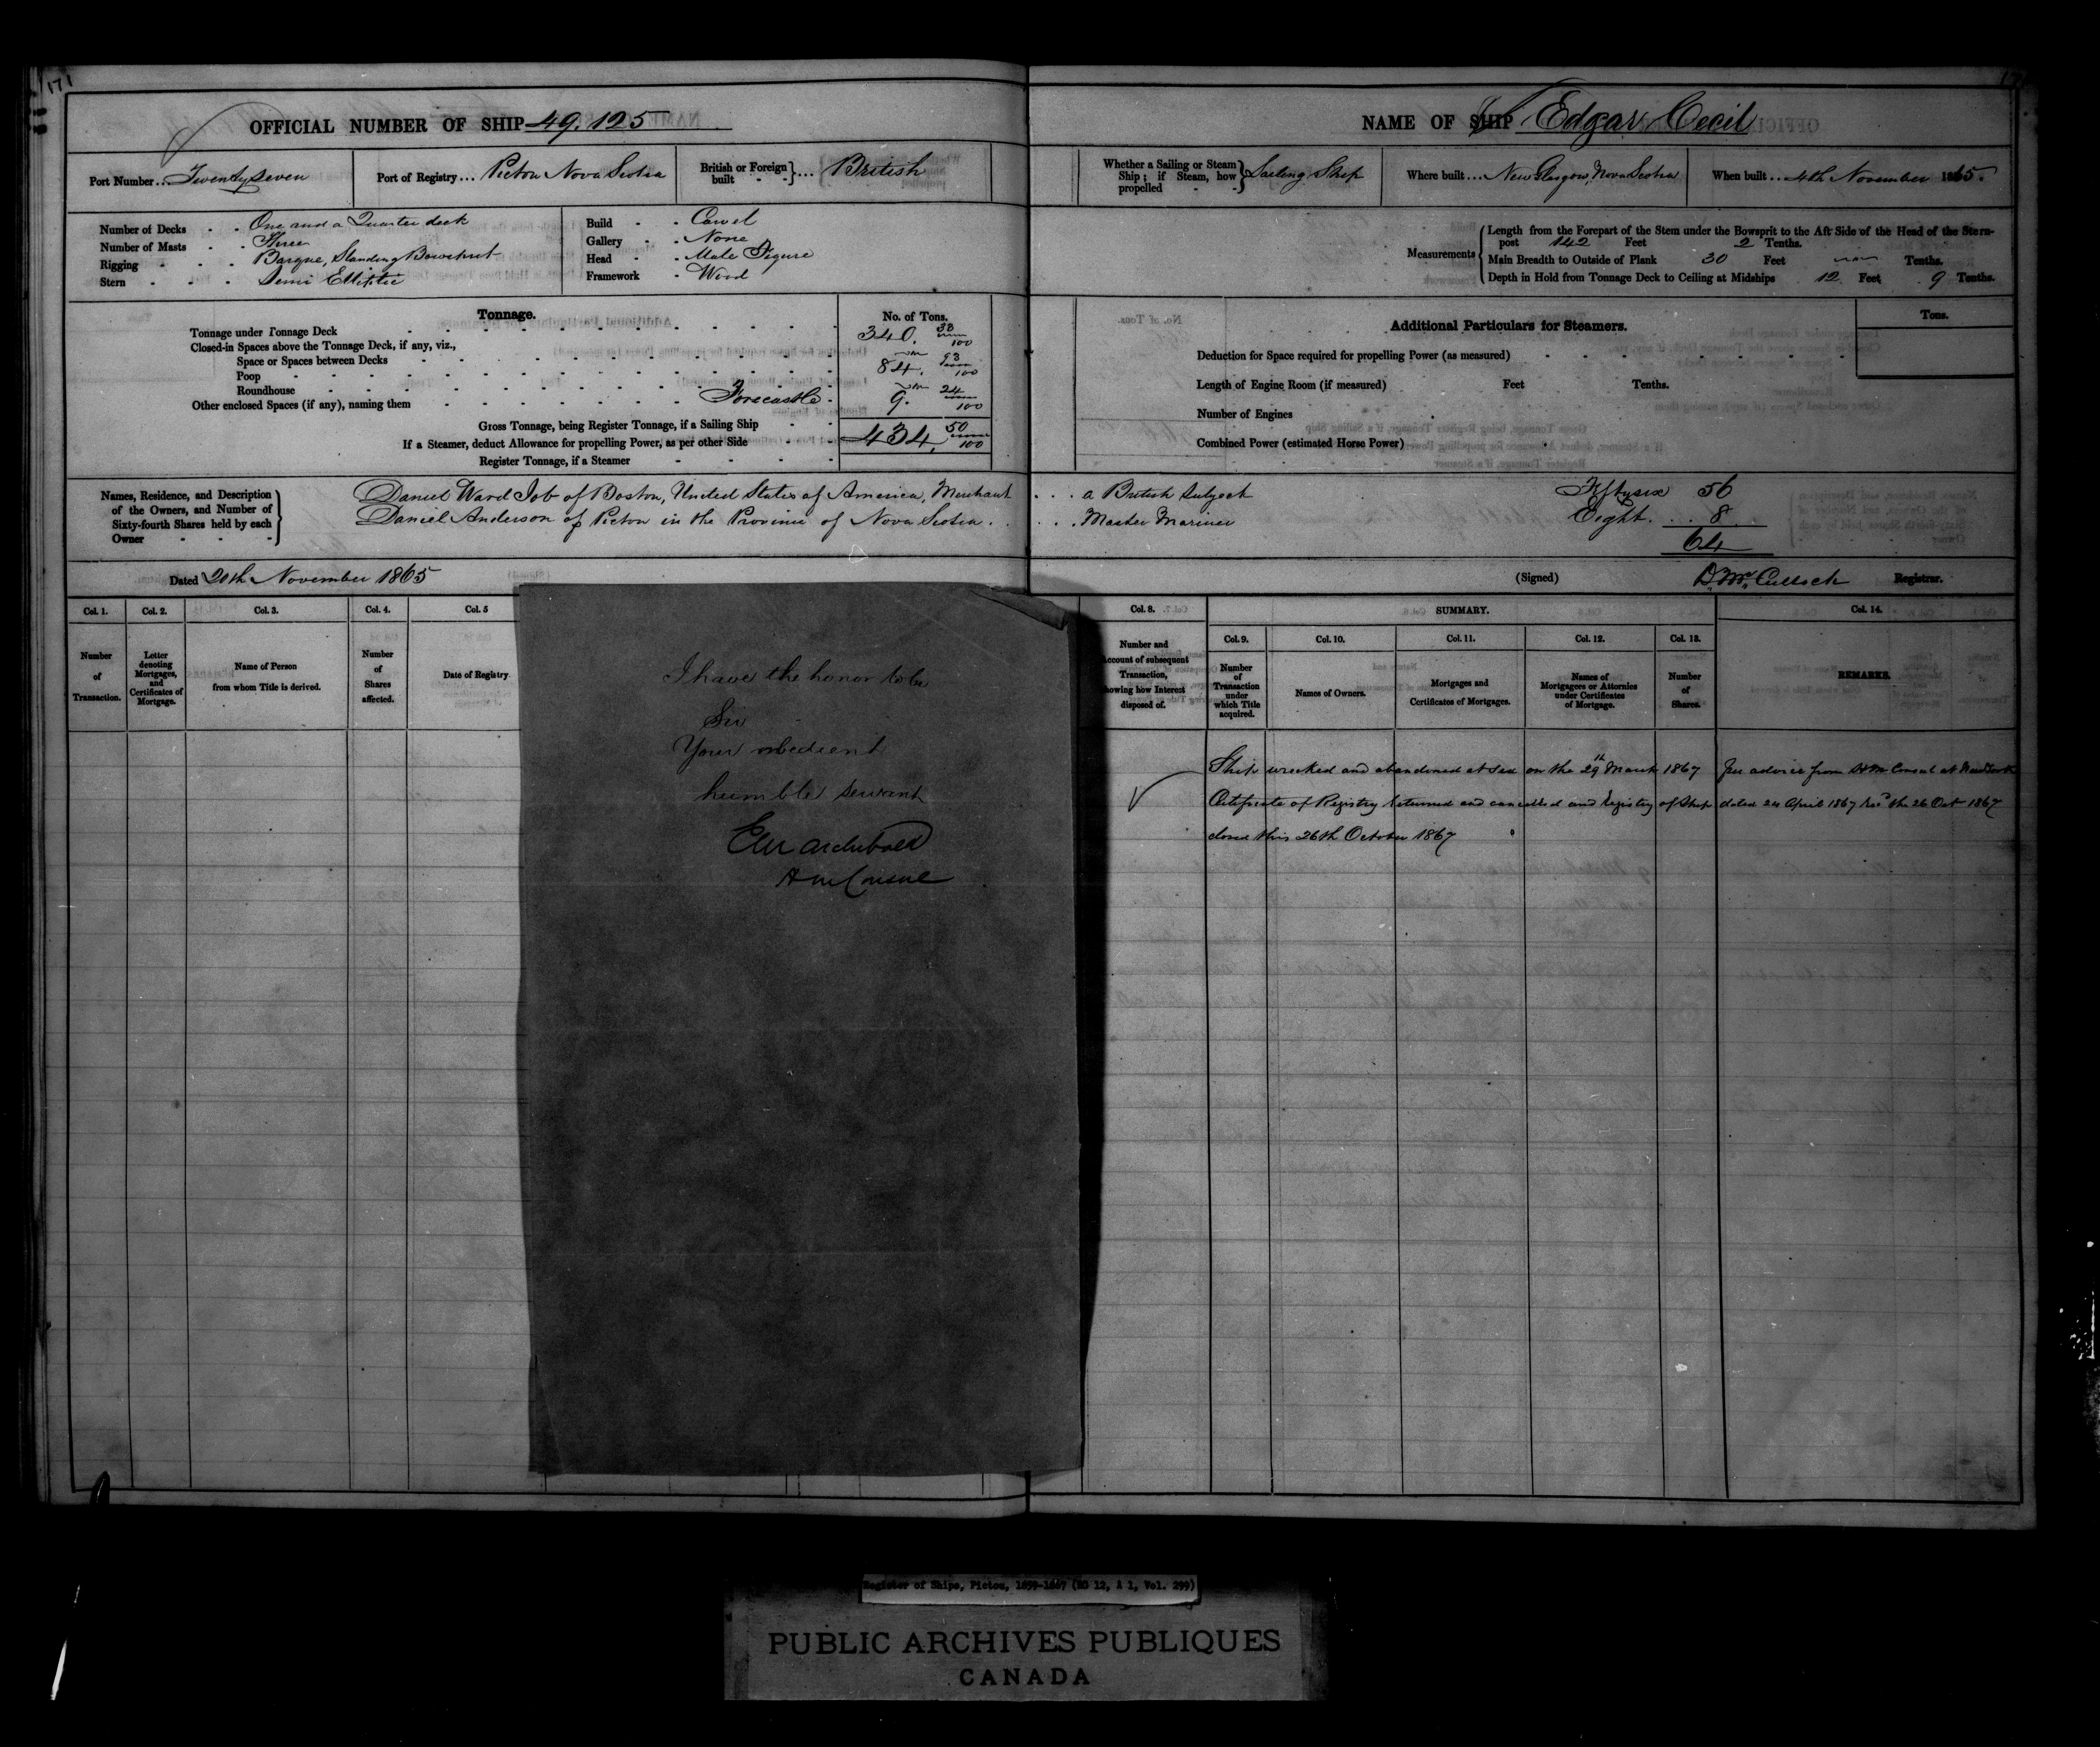 171
OFFICIAL NUMBER OF SHIP 49.125
Port Number... Twenty Seven
Port of Registry... Pictou Nova Scotia
British or Foreign built - - }... British
Number of Decks - - One and a Quarter deck
Number of Masts - - Three
Rigging - - - Barque, Standing Bowsprit
Stern - - - Semi Elliptic
Build - - Carvel
Gallery - - None
Head - - Male Figure
Framework - Wood
Tonnage.
No. of Tons.
Tonnage under Tonnage Deck 340. 33/100
Closed-in Spaces above the Tonnage Deck, if any, viz.,
Space or Spaces between Decks
Poop 84. 93/100
Roundhouse
Other enclosed Spaces (if any), naming them Forecastle 9. 24/100
Gross Tonnage, being Register Tonnage, if a Sailing Ship 434. 50/100
If a Steamer, deduct Allowance for propelling Power, as per other Side
Register Tonnage, if a Steamer
NAME OF SHIP Edgar Cecil
Whether a Sailing or Steam Ship; if Steam, how propelled - - } Sailing Ship
Where built... New Glasgow, Nova Scotia
When built... 4th November 1865.
Measurements
Length from the Forepart of the Stem under the Bowsprit to the Aft Side of the Head of the Stern-
post 142 Feet 2 Tenths.
Main Breadth to Outside of Plank 30 Feet Tenths.
Depth in Hold from Tonnage Deck to Ceiling at Midships 12 Feet 9 Tenths.
Additional Particulars for Steamers.
Tons.
Deduction for Space required for propelling Power (as measured)
Length of Engine Room (if measured) Feet Tenths.
Number of Engines
Combined Power (estimated Horse Power)
Names, Residence, and Description of the Owners, and Number of Sixty-fourth Shares held by each Owner
Daniel Ward Job of Boston, United States of America, Merchant . . . a British Subject Fifty six 56
Daniel Anderson of Pictou in the Province of Nova Scotia . . . . Master Mariner Eight . . . 8
64
Dated 20th November 1865
(Signed) D. McCulloch Registrar.
Col. 1.
Number of Transaction.
Col. 2.
Letter denoting Mortgages, and Certificates of Mortgage.
Col. 3.
Name of Person from whom Title is derived.
Col. 4.
Number of Shares affected.
Col. 5
Date of Registry
I have the honor to be
Sir
Your obedient
humble servant
EM Archibald
HM Consul
Col. 8.
Number and
ccount of subsequent
Transaction,
howing how Interest
disposed of.
SUMMARY.
Col. 9.
Number of Transaction under which Title acquired.
Col. 10.
Names of Owners.
Col. 11.
Mortgages and Certificates of Mortgages.
Col. 12.
Names of Mortgagees or Attornies under Certificates of Mortgage.
Col. 13.
Number of Shares.
Col. 14.
REMARKS.
Ship wrecked and abandoned at sea on the 29th March 1867 per advice from H M Consul at New York
Certificate of Registry returned and cancelled and Registry of Ship dated 24 April 1867 Recd the 26 Oct 1867
closed this 26th October 1867
Register of Ships, Pictou, 1859-1867 (RG 12, A 1, Vol. 299)
PUBLIC ARCHIVES PUBLIQUES
CANADA